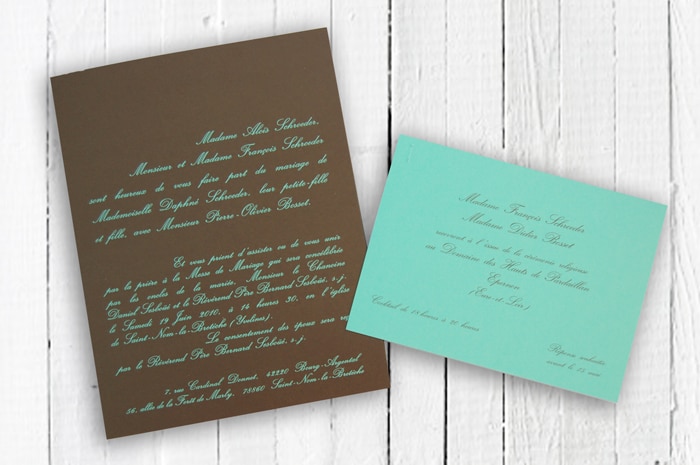 Madame Aloïs Schroeder,
Monsieur et Madame François Schroeder
sont heureux de vous faire part du mariage de
Mademoiselle Daphné Schroeder, leur petite-fille
et fille, avec Monsieur Pierre-Olivier Bosset.
Et vous prient d'assister ou de vous unir
par la prière à la Messe de Mariage qui sera concélébrée
par les oncles de la mariée, Monsieur le Chanoine
Daniel Sesboüé et le Révérend Père Bernard Sesboüé, s.j.
le Samedi 19 Juin 2010, à 14 heures 30, en l'église
de Saint-Nom-la-Bretèche (Yvelines).
Le consentement des époux sera
par le Révérend Père Bernard Sesboüé, s.j.
7, rue Cardinal Donnet, 42220 Bourg-Argental
36, allée de la Forêt de Marly, 78860 Saint-Nom-la-Bretèche
Madame François Schroeder
Madame Didier Bosset
recevront à l'issue de la cérémonie religieuse
au Domaine des Hauts de
Epernon
(Eure-et-Loir)
Cocktail de 18 heures à 20 heures
Réponse souhaitée
avant le 15 mai